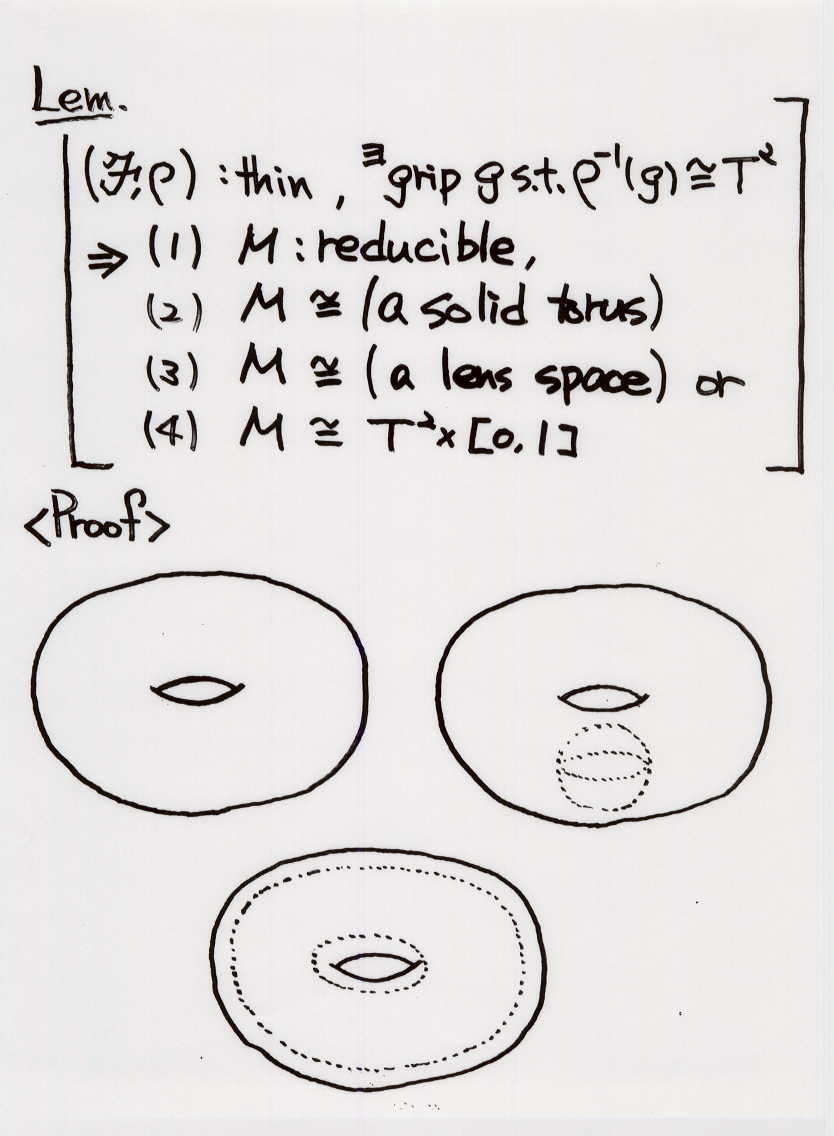 Lem.
(ℱ,ρ) : thin , ∃grip g s.t. ρ⁻¹(g) ≅ T²
⇒ (1) M : reducible,
(2) M ≅ (a solid torus)
(3) M ≅ (a lens space) or
(4) M ≅ T² × [0,1]
<Proof>